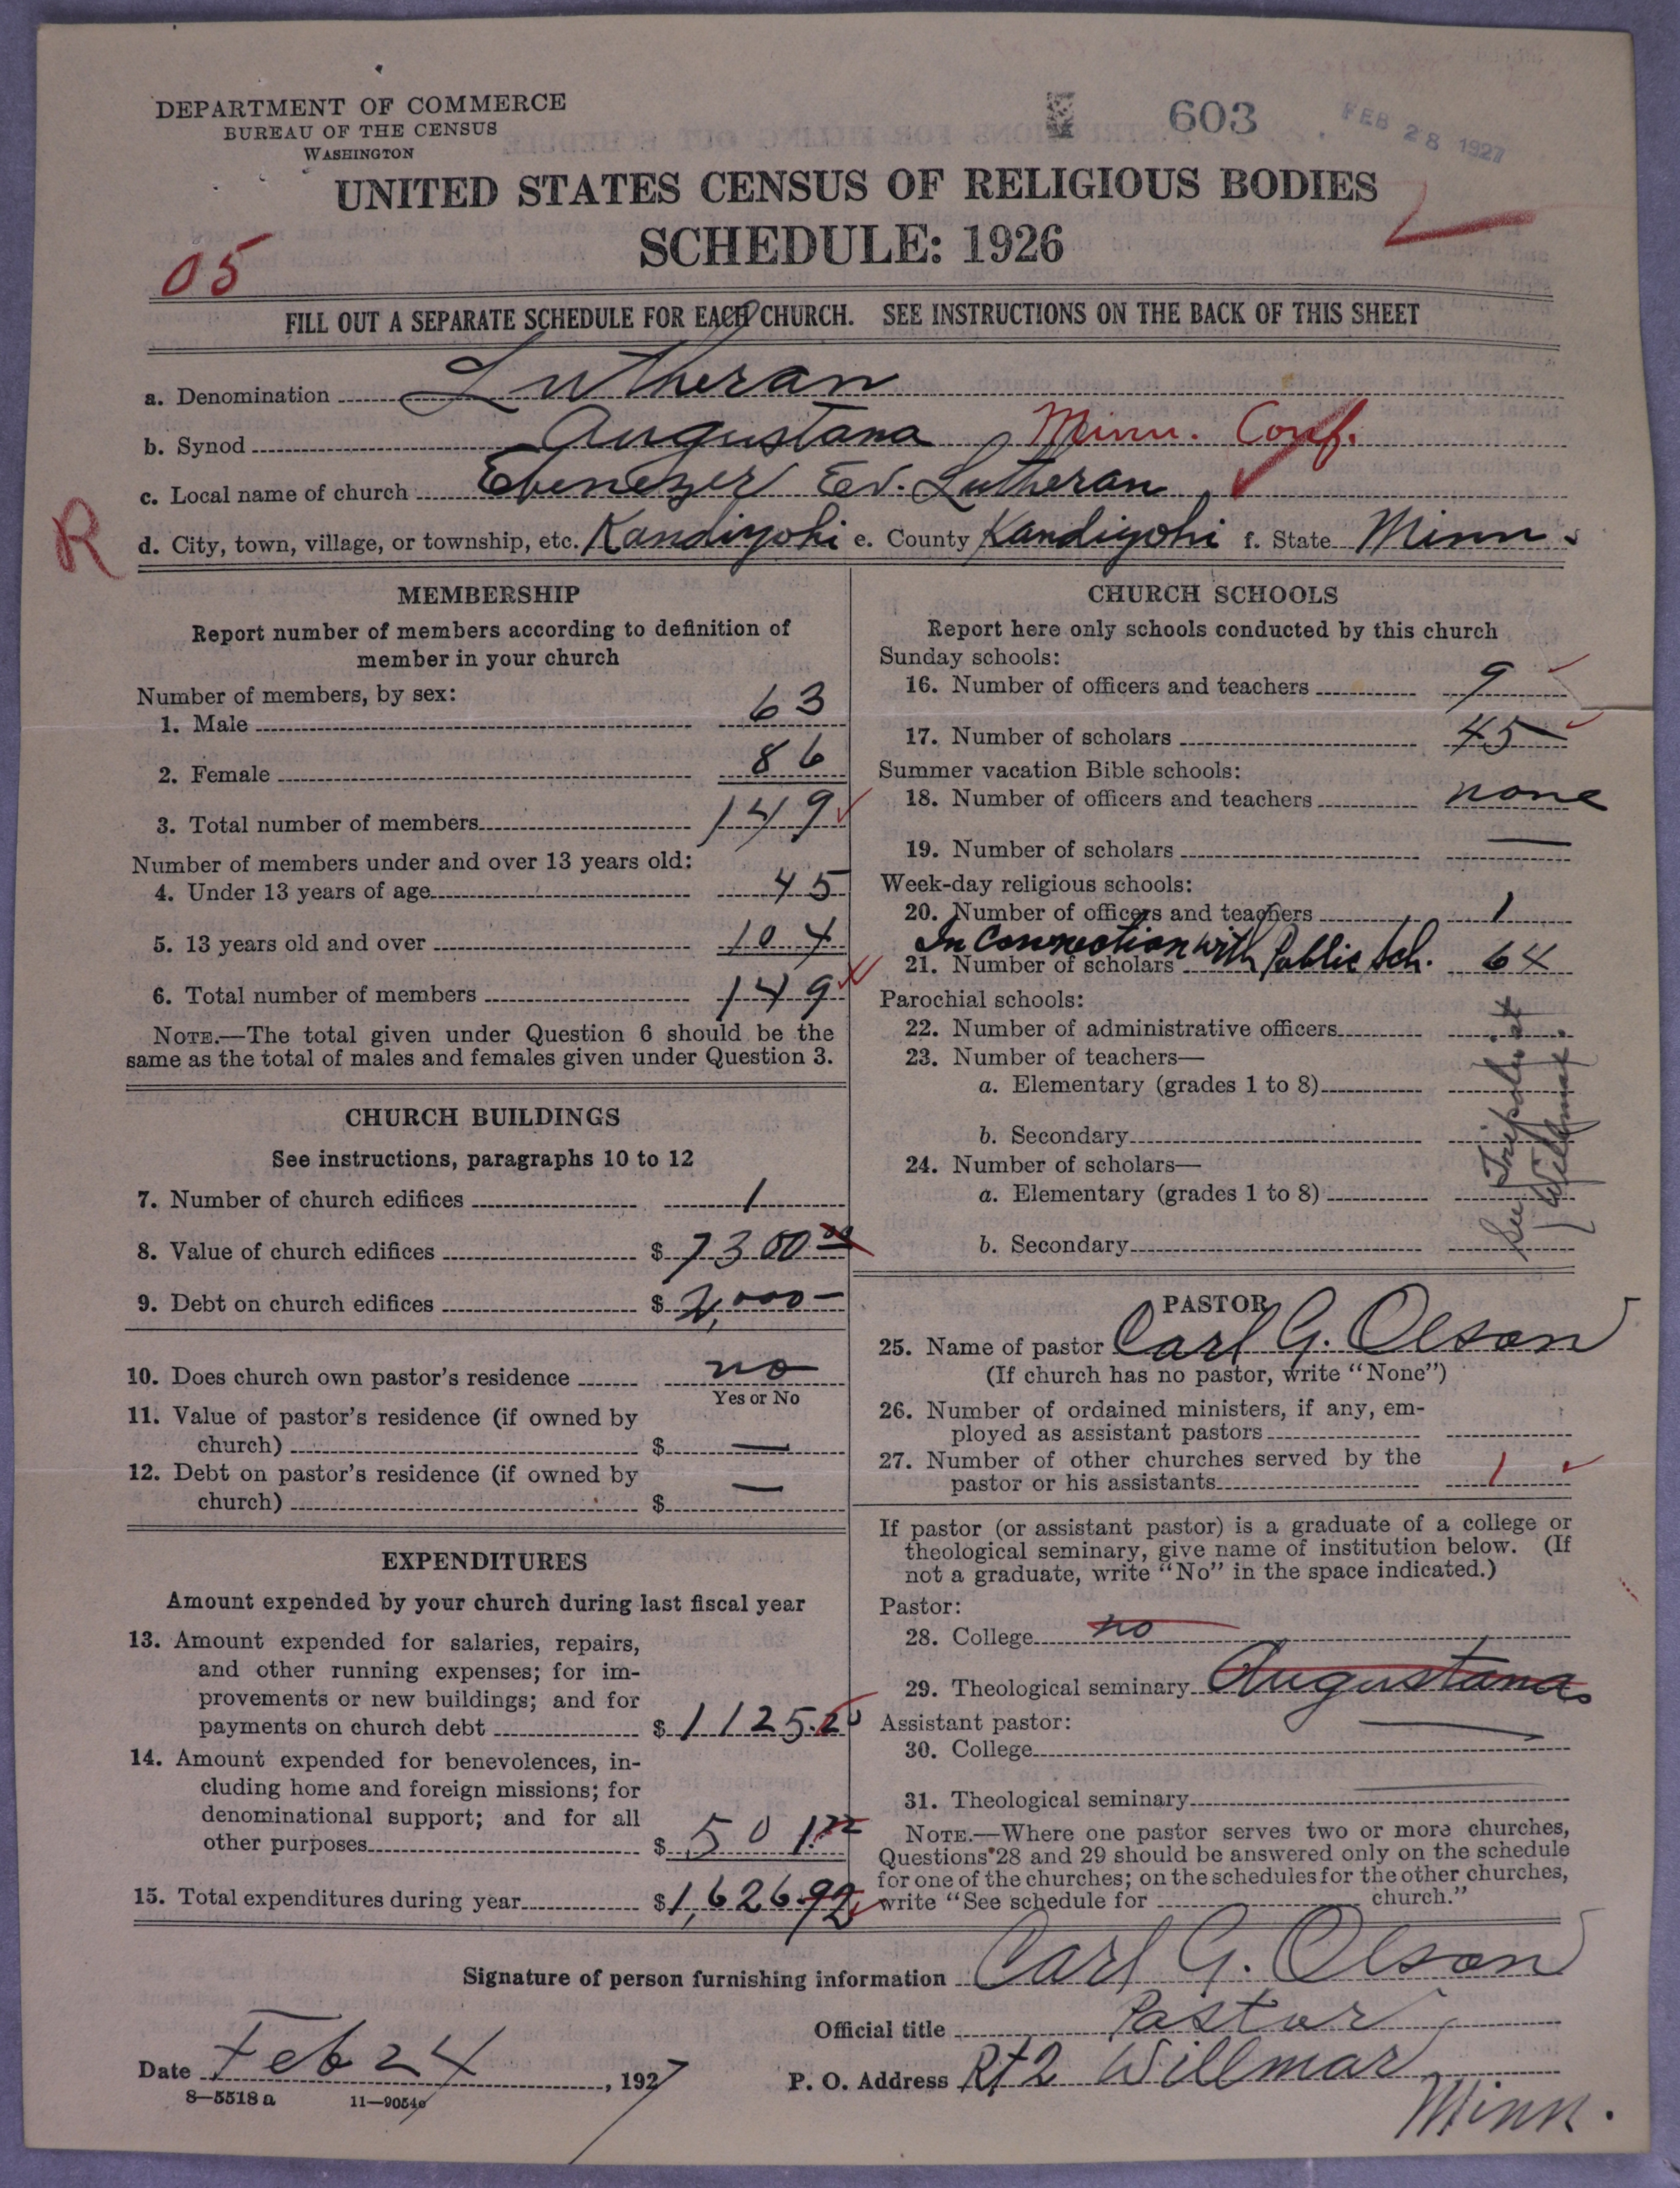 DEPARTMENT OF COMMERCE
BUREAU OF THE CENSUS
WASHINGTON
603
FEB 28 1927
UNITED STATES CENSUS OF RELIGIOUS BODIES
SCHEDULE: 1926
05
FILL OUT A SEPARATE SCHEDULE FOR EACH CHURCH. SEE INSTRUCTIONS ON THE BACK OF THIS SHEET
a. Denomination Lutheran
b. Synod Augustana, Minn. Conf.
c. Local name of church Ebenezer Ev. Lutheran
R
d. City, town, village, or township, etc. Kandiyohi e. County Kandiyohi f. State Minn.
MEMBERSHIP
Report number of members according to definition of
member in your church
Number of members, by sex:
1. Male 63
2. Female 86
3. Total number of members 149
Number of members under and over 13 years old:
4. Under 13 years of age 45
5. 13 years old and over 104
6. Total number of members 149
NOTE.—The total given under Question 6 should be the
same as the total of males and females given under Question 3.
CHURCH BUILDINGS
See instructions, paragraphs 10 to 12
7. Number of church edifices 1
8. Value of church edifices $ 7300.00
9. Debt on church edifices $ 2,000—
10. Does church own pastor's residence no
Yes or No
11. Value of pastor's residence (if owned by
church) $ —
12. Debt on pastor's residence (if owned by
church) $ —
EXPENDITURES
Amount expended by your church during last fiscal year
13. Amount expended for salaries, repairs,
and other running expenses; for im-
provements or new buildings; and for
payments on church debt $ 1125.20
14. Amount expended for benevolences, in-
cluding home and foreign missions; for
denominational support; and for all
other purposes $ 501.72
15. Total expenditures during year $ 1,626.92
CHURCH SCHOOLS
Report here only schools conducted by this church
Sunday schools:
16. Number of officers and teachers 9
17. Number of scholars 45
Summer vacation Bible schools:
18. Number of officers and teachers none
19. Number of scholars —
Week-day religious schools:
20. Number of officers and teachers 1
In Connection with Public Sch.
21. Number of scholars 64
Parochial schools:
22. Number of administrative officers
23. Number of teachers—
a. Elementary (grades 1 to 8)
b. Secondary
24. Number of scholars—
a. Elementary (grades 1 to 8)
b. Secondary
See Tripolis at
Willmar.
PASTOR
25. Name of pastor Carl G. Olson
(If church has no pastor, write "None")
26. Number of ordained ministers, if any, em-
ployed as assistant pastors
27. Number of other churches served by the
pastor or his assistants 1
If pastor (or assistant pastor) is a graduate of a college or
theological seminary, give name of institution below. (If
not a graduate, write "No" in the space indicated.)
Pastor:
28. College no
29. Theological seminary Augustana
Assistant pastor:
30. College —
31. Theological seminary —
NOTE.—Where one pastor serves two or more churches,
Questions 28 and 29 should be answered only on the schedule
for one of the churches; on the schedules for the other churches,
write "See schedule for church."
Signature of person furnishing information Carl G. Olson
Official title Pastor
Date Feb 24, 1927
P. O. Address Rt 2 Willmar
Minn.
8—5518 a 11—9054